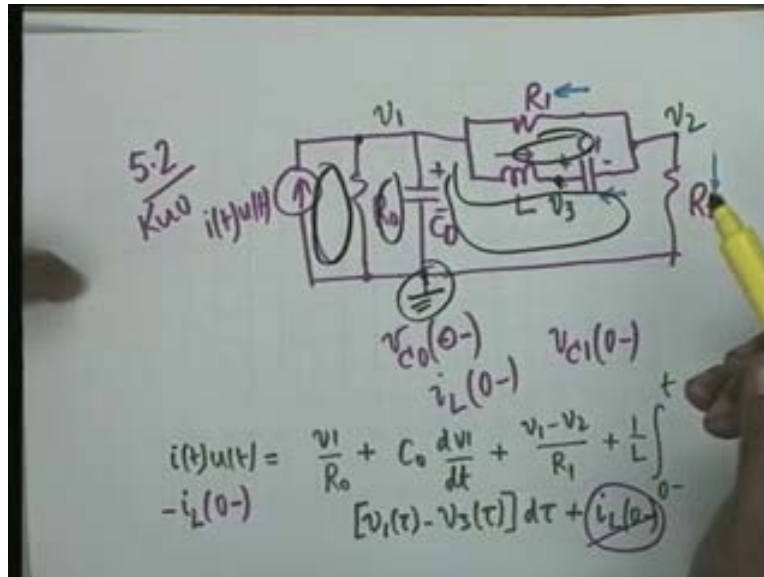 R1
v1
v2
5.2
Kuo
i(t)u(t)
R0
C0
+
-
L
v3
+
-
C1
v_C0(0-)
v_C1(0-)
i_L(0-)
i(t)u(t) = v1/R0 + C0 dv1/dt + (v1-v2)/R1 + 1/L ∫_{0-}^{t}
-i_L(0-) [v1(τ) - v3(τ)] dτ + i_L(0-)